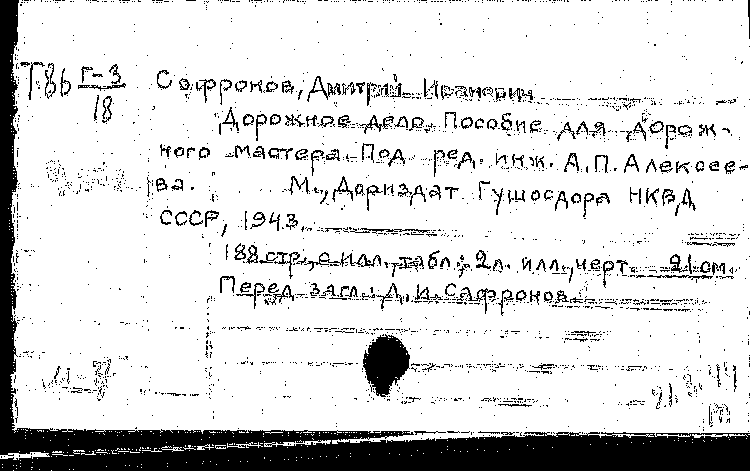 Т86 Г-3/18
Сафронов, Дмитрий Иванович
Дорожное дело. Пособие для дорож-
ного мастера. Под ред. инж. А.П. Алексее-
ва. М., Дориздат Гушосдора НКВД
СССР, 1943.
188 стр., с илл., табл.; 2 л. илл., черт. 21 см.
Перед загл.: Д. И. Сафронов.